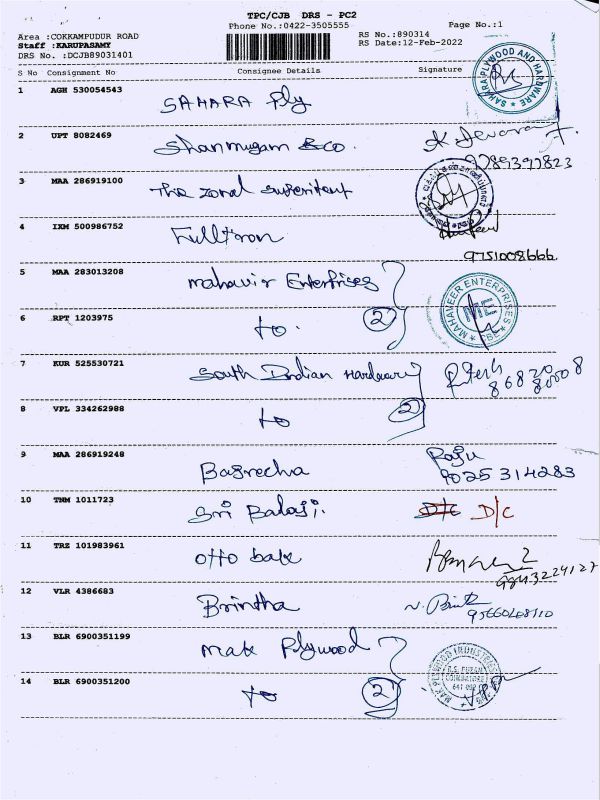 TPC/CJB DRS - PC2
Phone No.:0422-3505555
Page No.:1
Area :COKKAMPUDUR ROAD
Staff :KARUPASAMY
DRS No. :DCJB89031401
RS No.:890314
RS Date:12-Feb-2022
S No Consignment No Consignee Details Signature
1 AGH 530054543 SAHARA Ply
SAHARA PLYWOOD AND HARDWARE
2 UPT 8082469 Shanmugam & co.
9789397823
3 MAA 286919100 The Zonal
4 IXM 500986752 Fulltron
9751008666
5 MAA 283013208 mahavir Enterprises
MAHAVEER ENTERPRISES
ME
CBE
6 RPT 1203975 to. 2
7 KUR 525530721 South Indian Hardware
86820
80008
8 VPL 334262988 to 2
9 MAA 286919248 Basrecha
Raju
9025 314283
10 TNM 1011723 Sri Balaji. D/C D/C
11 TRZ 101983961 Otto
12 VLR 4386683 Brintha
13 BLR 6900351199 Mak Plywood
14 BLR 6900351200 to 2
COIMBATORE